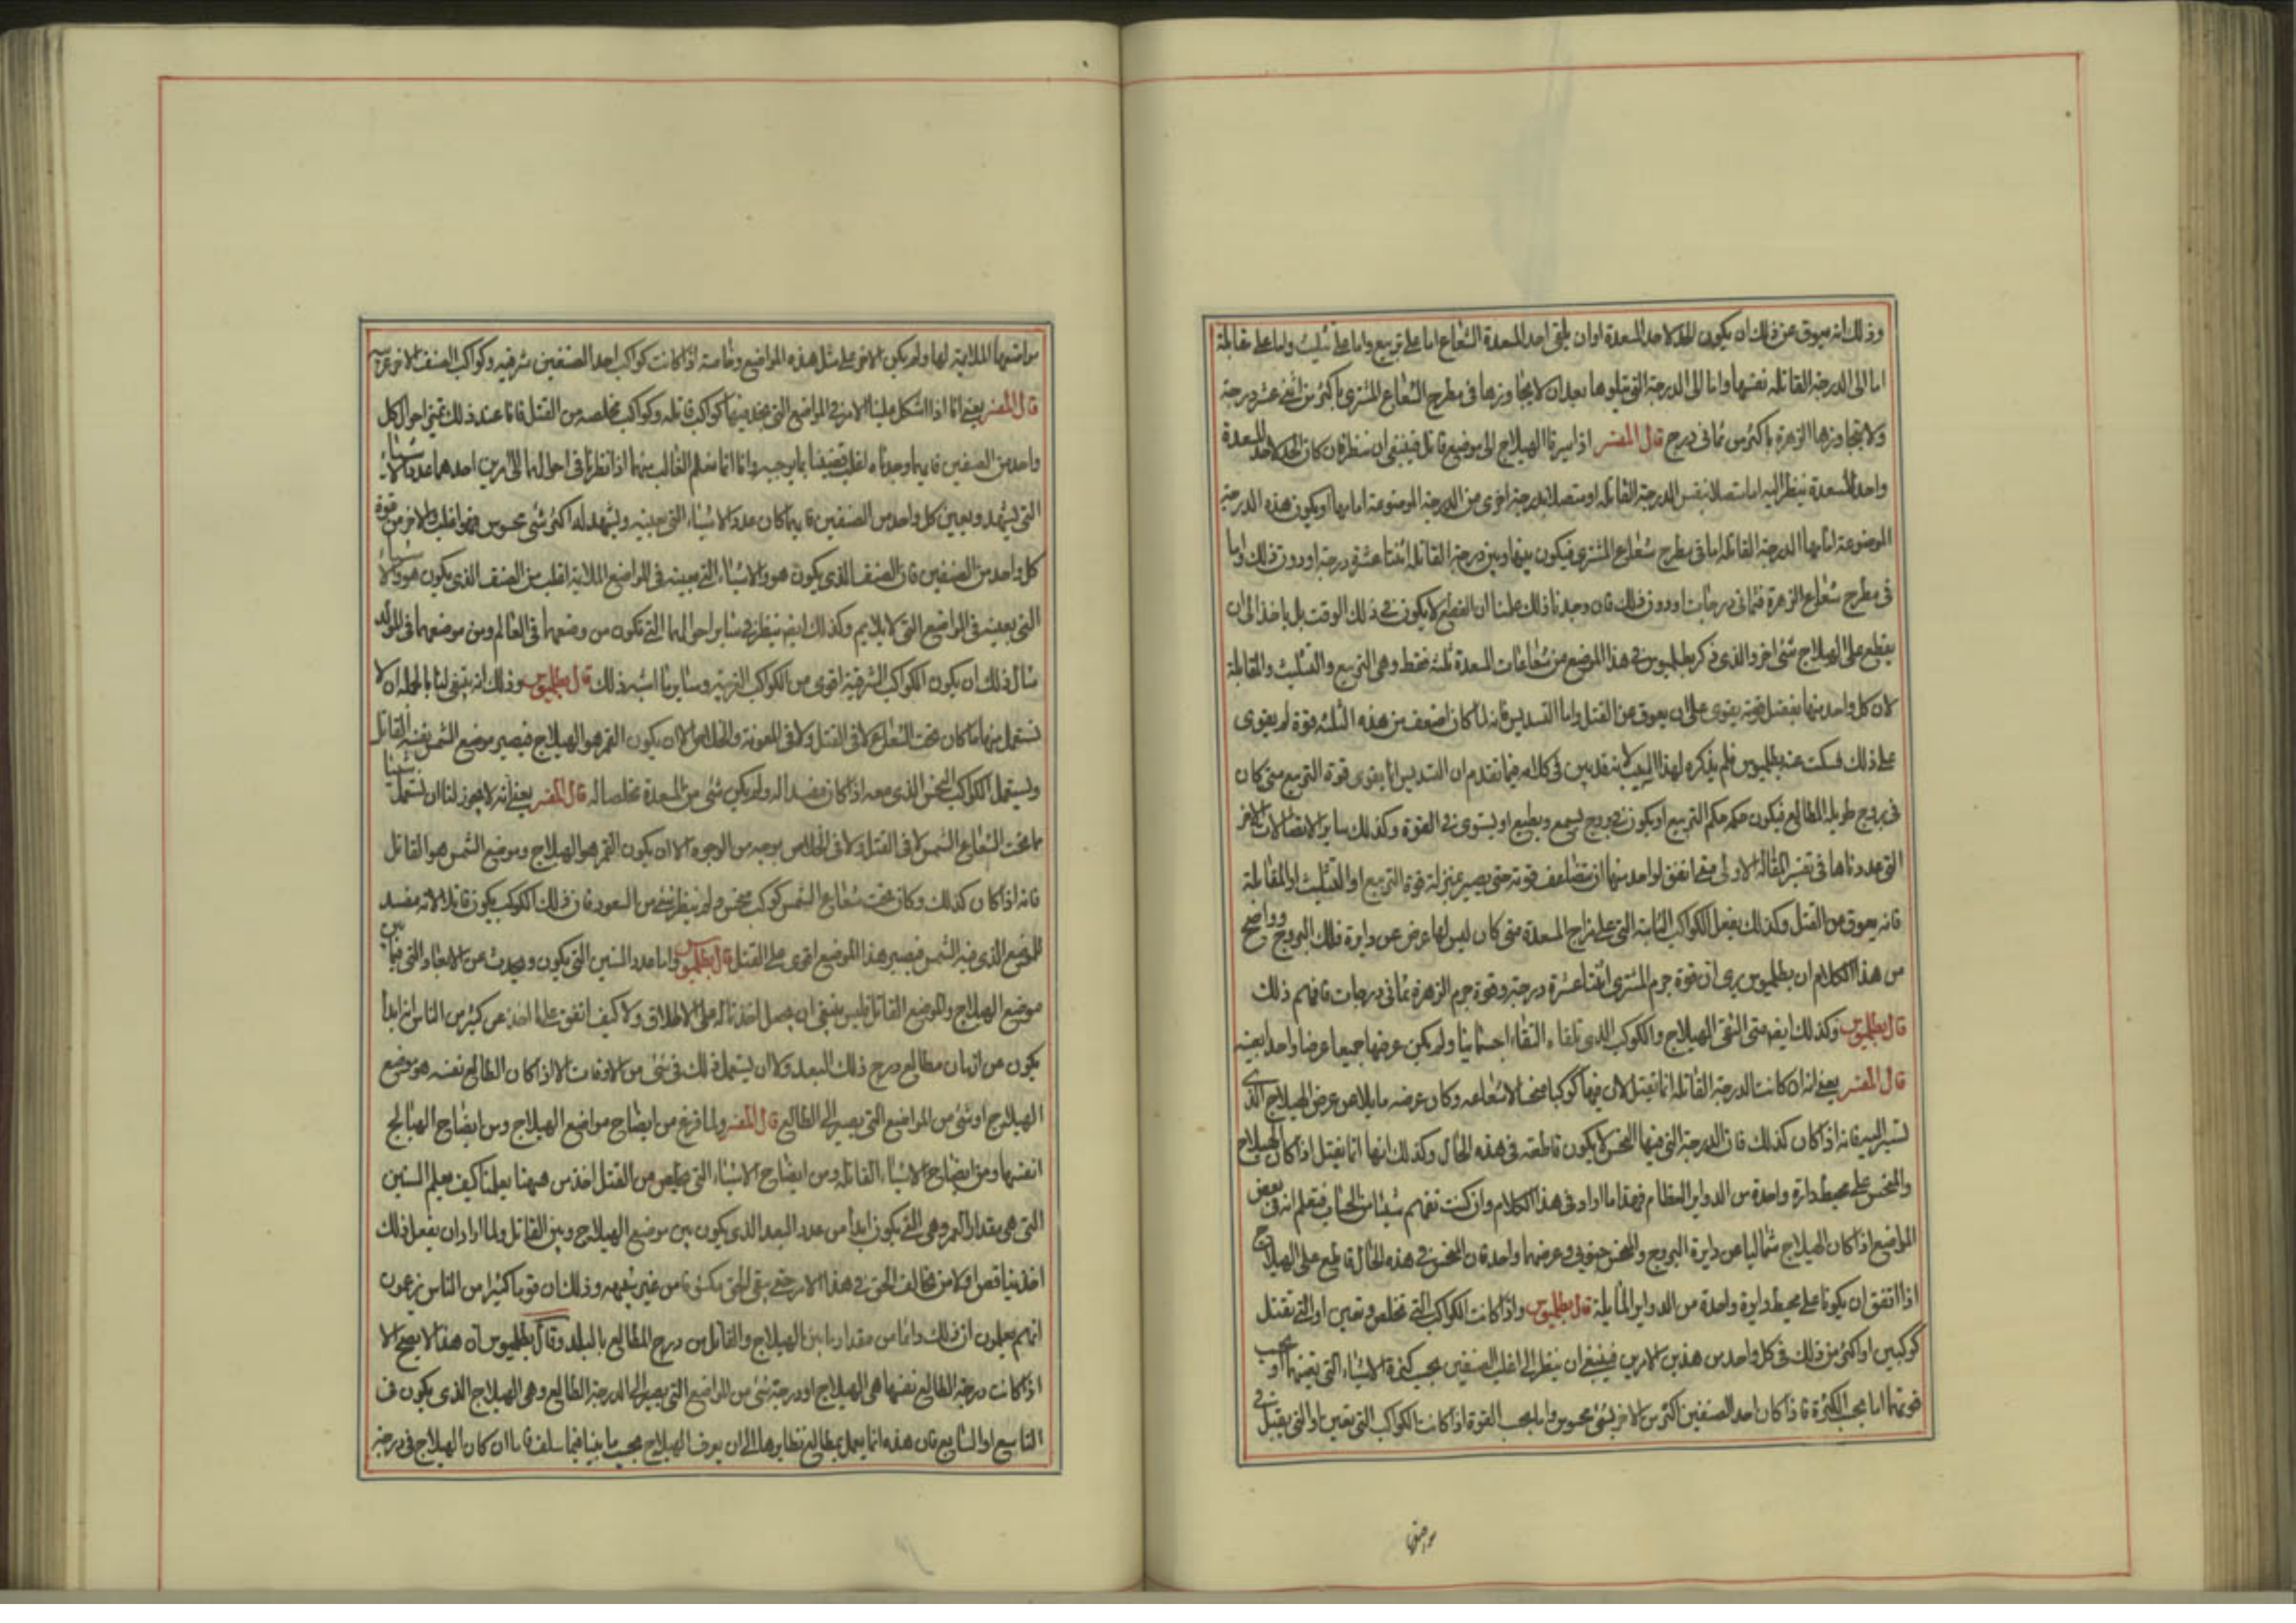 وذلك انه يعوق عن ذلك ان يكون الحد لاحد المسعدة او ان يلقى احد المسعدة الشعاع اما على تربيع واما على تثليث واما على مقابلة
اما الى الدرجة القاتلة نفسها واما الى الدرجة التى تتلوها بعد ان لا يجاوزها فى مطرح الشعاع المشترى باكثر من اثنى عشر درجة
ولا يتجاوزها الزهرة باكثر من ثمانى درج قال المفسر اذا سيرنا الهيلاج الى موضع قاتل فينبغى ان ننظر فان كان الحد لاحد المسعدة
واحد المسعدة ينظر اليه اما متصلا بنفس الدرجة القاتلة او متصلا بدرجة اخرى من الدرجة الموضوعة امامها او يكون هذه الدرجة
الموضوعة امامها الدرجة القاتلة اما فى مطرح شعاع المشترى فيكون بينها وبين درجة القاتلة اثنتا عشرة درجة او دون ذلك واما
فى مطرح شعاع الزهرة فثمانى درجات او دون ذلك فان وجدنا ذلك علمنا ان القطع لا يكون فى ذلك الوقت بل ياخذ الى ان
يقطع على الهيلاج شئ اخر والذى ذكر بطلميوس فى هذا الموضع من شعاعات المسعدة ثلثة فقط وهى التربيع والتثليث والمقابلة
لان كل واحد منها بفضل قوته يقوى على ان يعوق عن القتل واما التسديس فانه لما كان اضعف من هذه الثلثة قوة لم يقوى
على ذلك فسكت عنه بطلميوس فلم يذكره لهذا السبب لانه قد بين فى كلامه فيما تقدم ان التسديس انما يقوى قوة التربيع متى كان
فى بروج طويلة المطالع فيكون حكمه حكم التربيع او يكون فى بروج يسمع ويطيع او يستوى فى القوة وكذلك ساير الاتصالات الاخر
التى عددناها فى تفسير المقالة الاولى متى اتفق لواحد منها ان يتضاعف قوته حتى يصير بمنزلة قوة التربيع او التثليث او المقابلة
فانه يعوق من القتل وكذلك يفعل الكواكب الثابتة التى على مزاج المسعدة متى كان ليس لها عرض عن دايرة فلك البروج وواضح
من هذا الكلام ان بطلميوس يرى ان قوة جرم المشترى اثنتا عشرة درجة وقوة جرم الزهرة ثمانى درجات فافهم ذلك
قال بطلميوس وكذلك ايضا متى التقى الهيلاج والكوكب الذى تلقاه التقاء جسمانيا ولم يكن عرضها جميعا عرضا واحدا بعينه
قال المفسر يعنى انه ان كانت الدرجة القاتلة انما تقتل لان فيها كوكبا منحسا لا شعاعه وكان عرضه مايلا عن عرض الهيلاج الذى
تسير اليه فانه اذا كان كذلك فان الدرجة التى فيها المنحس لا يكون قاطعة فى هذه الحال وكذلك انها انما تقتل اذا كان الهيلاج
والمنحس على محيط دايرة واحدة من الدواير العظام فهذا ما اراد فى هذا الكلام وان كنت تفهم شيئا من الحساب فتعلم انه فى بعض
المواضع اذا كان الهيلاج شماليا عن دايرة البروج والمنحس جنوبى وعرضهما واحد فان المنحس فى هذه الحال قاطع على الهيلاج
اذا اتفق ان يكونا على محيط دايرة واحدة من الدواير المايلة قال بطلميوس واذا كانت الكواكب التى تخلص وتعين او التى تقتل
كوكبين او اكثر من ذلك فى كل واحد من هذين الامرين فينبغى ان ينظر الى اغلب الصنفين بحسب كثرة الاشياء التى تعينهما او بحسب
قوتهما اما بحسب الكثرة فاذا كان احد الصنفين اكثر من الاخر بشئ محسوس واما بحسب القوة اذا كانت الكواكب التى تعين او التى يقتل فى
مواضعها الملايمة لها ولم يكن الاخر على مثل هذه المواضع وخاصة اذا كانت كواكب احد الصنفين شرقية وكواكب الصنف الاخر غربية
قال المفسر يعنى انا اذا اشكل علينا الامر فى المواضع التى نجد فيها كواكب قاتلة وكواكب مخلصة من القتل فانا عند ذلك نميز احوال كل
واحد من الصنفين فايهما وجدناه اغلب قضينا بما يوجبه وانا انما نعلم الغالب منهما اذا نظرنا فى احوالهما الى امرين احدهما عدد الاشياء
التى يشهد ويعين كل واحد من الصنفين فايهما كان عدد الاشياء التى تعينه ويشهد له اكثر بشئ محسوس فهو اغلب والاخر من قوة
كل واحد من الصنفين فان الصنف الذى يكون هو والاشياء التى تعينه فى المواضع الملايمة اغلب من الصنف الذى يكون هو والاشياء
التى تعينه فى المواضع التى لا يلايم وكذلك ايضا ينظر فى ساير احوالهما التى تكون من وضعهما فى العالم ومن موضعهما فى المولد
مثال ذلك ان يكون الكواكب الشرقية اقوى من الكواكب الغربية وساير ما اشبه ذلك قال بطلميوس وذلك انه ينبغى لنا بالجملة ان لا
نستعمل منها ما كان تحت الشعاع لا فى القتل ولا فى المعونة والخلاص الا ان يكون القمر هو الهيلاج فيصير موضع الشمس نفسه القاتل
ويستعمل الكوكب المنحس الذى معه اذا كان مفسدا له ولم يكن شئ من المسعدة مخلصا له قال المفسر يعنى انه لا يجوز لنا ان نستعمل شيئا
مما تحت الشعاع الشمس لا فى القتل ولا فى الخلاص بوجه من الوجوه الا ان يكون القمر هو الهيلاج وموضع الشمس هو القاتل
فانه اذا كان كذلك وكان تحت شعاع الشمس كوكب منحس ولم ينظر شئ من السعود فان ذلك الكوكب يكون قاتلا لانه مفسد
للموضع الذى فيه الشمس فيصير هذا الموضع اقوى على القتل قال بطلميوس واما عدد السنين التى يكون ويحدث عن الابعاد التى فيما بين
موضع الهيلاج والموضع القاتل فليس ينبغى ان يحصل اخذنا له على الاطلاق ولا كيف اتفق على ما اخذ عن كثير من الناس انه ابدا
يكون من ازمان مطالع درج ذلك البعد ولا ان يستعمل ذلك فى شئ من الاوقات الا اذا كان الطالع نفسه هو موضع
الهيلاج او شئ من المواضع التى يصير الى الطالع قال المفسر ولما فرغ من ايضاح مواضع الهيلاج ومن ايضاح الهيالج
انفسها ومن ايضاح الاشياء القاتلة ومن ايضاح الاشياء التى تخلص من القتل اخذ من هيهنا يعلمنا كيف نعلم السنين
التى هى مقدار العمر وهى التى يكون ابدا من عدد البعد الذى يكون بين موضع الهيلاج وبين القاتل ولما اراد ان يفعل ذلك
اخذ يناقض اولا من خالف الحق فى هذا الامر حتى يبقى الحق مكشوفا من غير شبهة وذلك ان قوما كثيرا من الناس يزعمون
انهم يعلمون ان ذلك دائما من مقدار ما بين الهيلاج والقاتل من درج المطالع بالبلد وقال بطلميوس ان هذا لا يصح الا
اذا كانت درجة الطالع نفسها هى الهيلاج او درجة شئ من المواضع التى يصير الى الدرجة الطالع وهى الهيلاج الذى يكون فى
التاسع او السابع فان هذه انما يعمل بمطالع نظايرها الى ان يعرف الهيلاج بحسب ما بينا فيما سلف فاما ان كان الهيلاج فى درجة
مواضعها